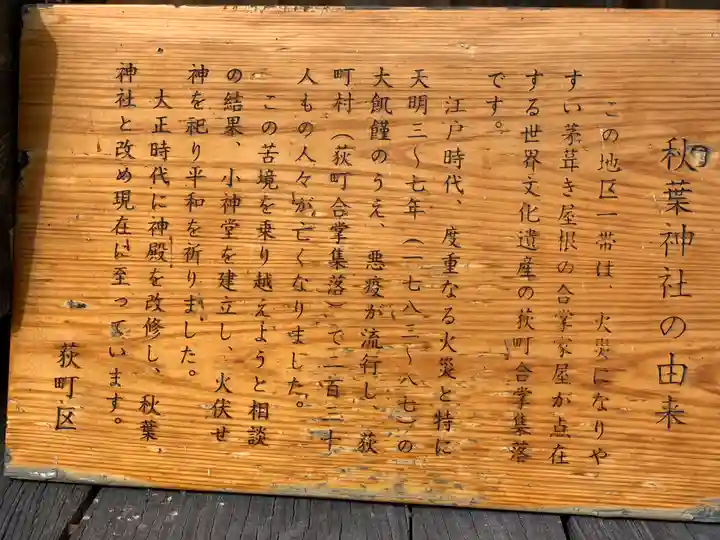 秋葉神社の由来
この地区一帯は、火災になりや
すい茅葺き屋根の合掌家屋が点在
する世界文化遺産の荻町合掌集落
です。
江戸時代、度重なる火災と特に
天明三〜七年（一七八三〜八七）の
大飢饉のうえ、悪疫が流行し、荻
町村（荻町合掌集落）で二百三十
人もの人々が亡くなりました。
この苦境を乗り越えようと相談
の結果、小神堂を建立し、火伏せ
神を祀り平和を祈りました。
大正時代に神殿を改修し、秋葉
神社と改め現在に至っています。
荻町区